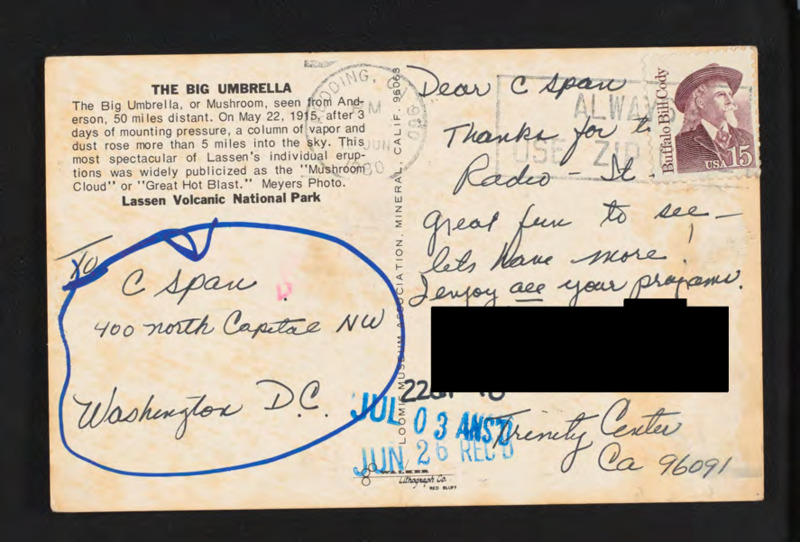 THE BIG UMBRELLA
The Big Umbrella, or Mushroom, seen from And-
erson, 50 miles distant. On May 22, 1915, after 3
days of mounting pressure, a column of vapor and
dust rose more than 5 miles into the sky. This
most spectacular of Lassen's individual erup-
tions was widely publicized as the "Mushroom
Cloud" or "Great Hot Blast." Meyers Photo.
Lassen Volcanic National Park
C Span
400 north Capital NW
Washington D.C.
LOOMIS MUSEUM ASSOCIATION, MINERAL, CALIF. 96063
ALWAYS
USE ZIP
Buffalo Bill Cody
USA 15
Dear C Span
Thanks for
Radio - It
great fun to see -
lets have more!
I enjoy all your programs.
Trinity Center
Ca 96091
JUL 03 ANS'D
JUN 26 REC'D
WALKER
Lithograph Co.
RED BLUFF